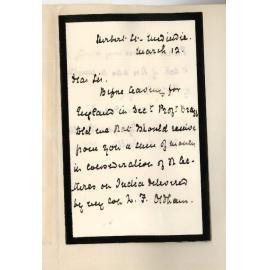 Herbert St - Medindie.
March 12.
Dear Sir,
Before leaving for
England in Dec. Prof. Bragg
told me that I should receive
from you a sum of money
in consideration of the lec-
tures on India delivered
by my son L. F. Oldham.